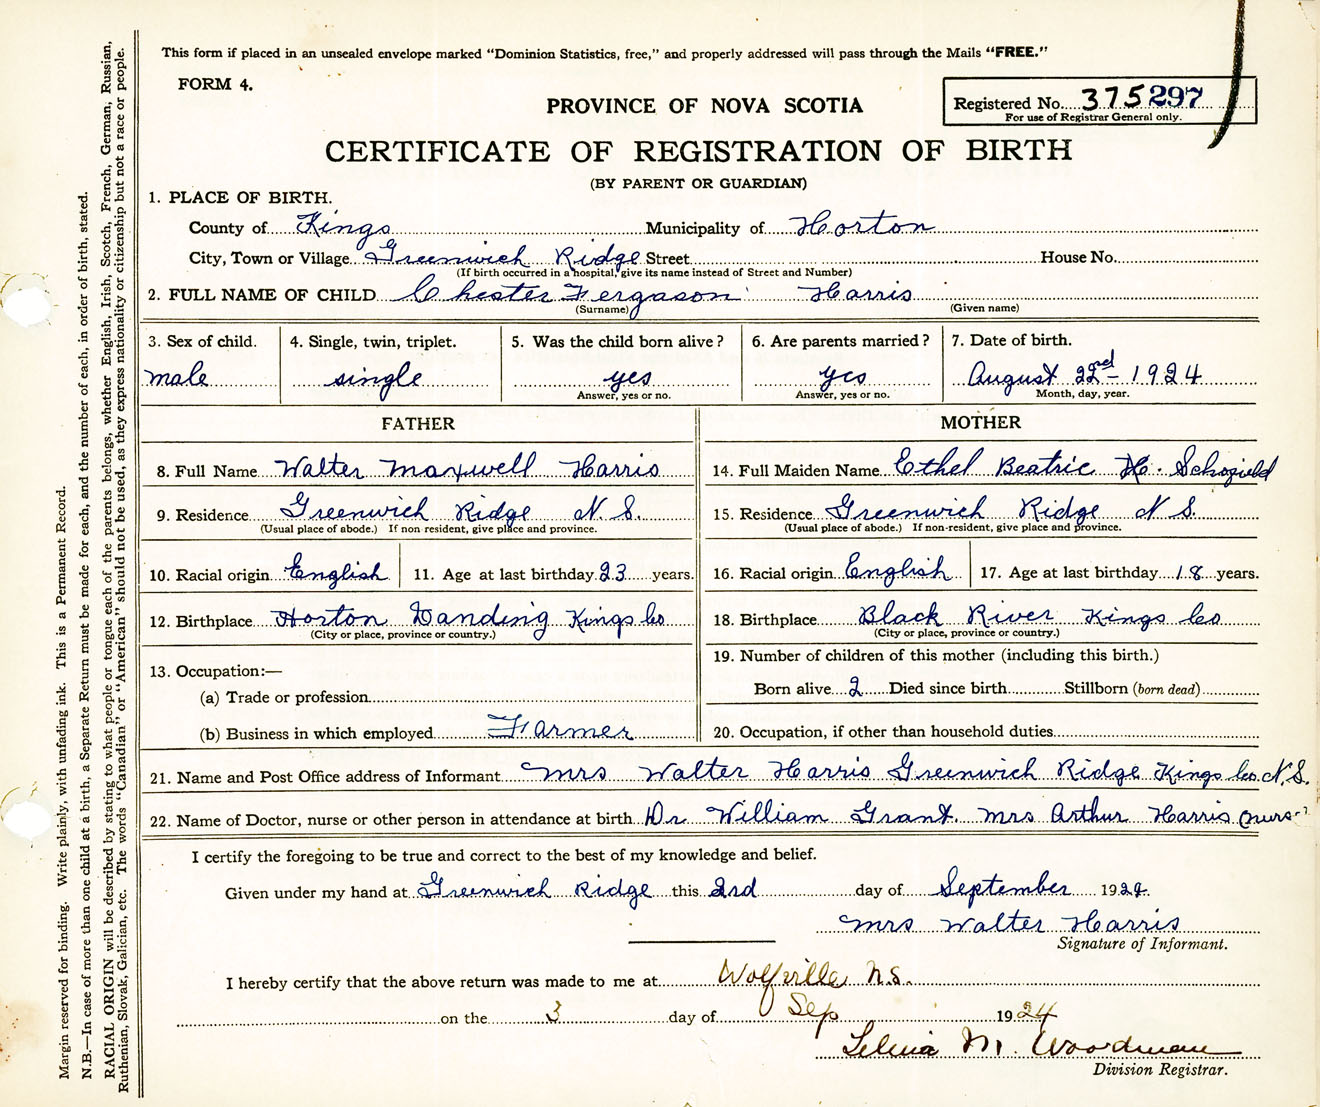 This form if placed in an unsealed envelope marked "Dominion Statistics, free," and properly addressed will pass through the Mails "FREE."
FORM 4.
Registered No. 375297
For use of Registrar General only.
PROVINCE OF NOVA SCOTIA
CERTIFICATE OF REGISTRATION OF BIRTH
(BY PARENT OR GUARDIAN)
1. PLACE OF BIRTH.
County of Kings Municipality of Horton
City, Town or Village Greenwich Ridge Street House No.
(If birth occurred in a hospital, give its name instead of Street and Number)
2. FULL NAME OF CHILD Chester Fergason Harris
(Surname) (Given name)
3. Sex of child. 4. Single, twin, triplet. 5. Was the child born alive? 6. Are parents married? 7. Date of birth.
male single yes yes August 22nd - 1924
Answer, yes or no. Answer, yes or no. Month, day, year.
FATHER MOTHER
8. Full Name Walter Maxwell Harris
9. Residence Greenwich Ridge N S.
(Usual place of abode.) If non resident, give place and province.
10. Racial origin English 11. Age at last birthday 23 years.
12. Birthplace Horton Landing Kings Co
(City or place, province or country.)
13. Occupation:—
(a) Trade or profession
(b) Business in which employed Farmer
14. Full Maiden Name Ethel Beatric H. Schofield
15. Residence Greenwich Ridge N S.
(Usual place of abode.) If non-resident, give place and province.
16. Racial origin English 17. Age at last birthday 18 years.
18. Birthplace Black River Kings Co
(City or place, province or country.)
19. Number of children of this mother (including this birth.)
Born alive 2 Died since birth Stillborn (born dead)
20. Occupation, if other than household duties
21. Name and Post Office address of Informant Mrs Walter Harris Greenwich Ridge Kings Co. N.S.
22. Name of Doctor, nurse or other person in attendance at birth Dr William Grant. Mrs Arthur Harris
I certify the foregoing to be true and correct to the best of my knowledge and belief.
Given under my hand at Greenwich Ridge this 3rd day of September 1924.
Mrs Walter Harris
Signature of Informant.
I hereby certify that the above return was made to me at Wolfville N.S.
on the 3 day of Sep 1924
M. Woodman
Division Registrar.
Margin reserved for binding. Write plainly, with unfading ink. This is a Permanent Record.
N.B.—In case of more than one child at a birth, a Separate Return must be made for each, and the number of each, in order of birth, stated.
RACIAL ORIGIN will be described by stating to what people or tongue each of the parents belongs, whether English, Irish, Scotch, French, German, Russian,
Ruthenian, Slovak, Galician, etc. The words "Canadian" or "American" should not be used, as they express nationality or citizenship but not a race or people.